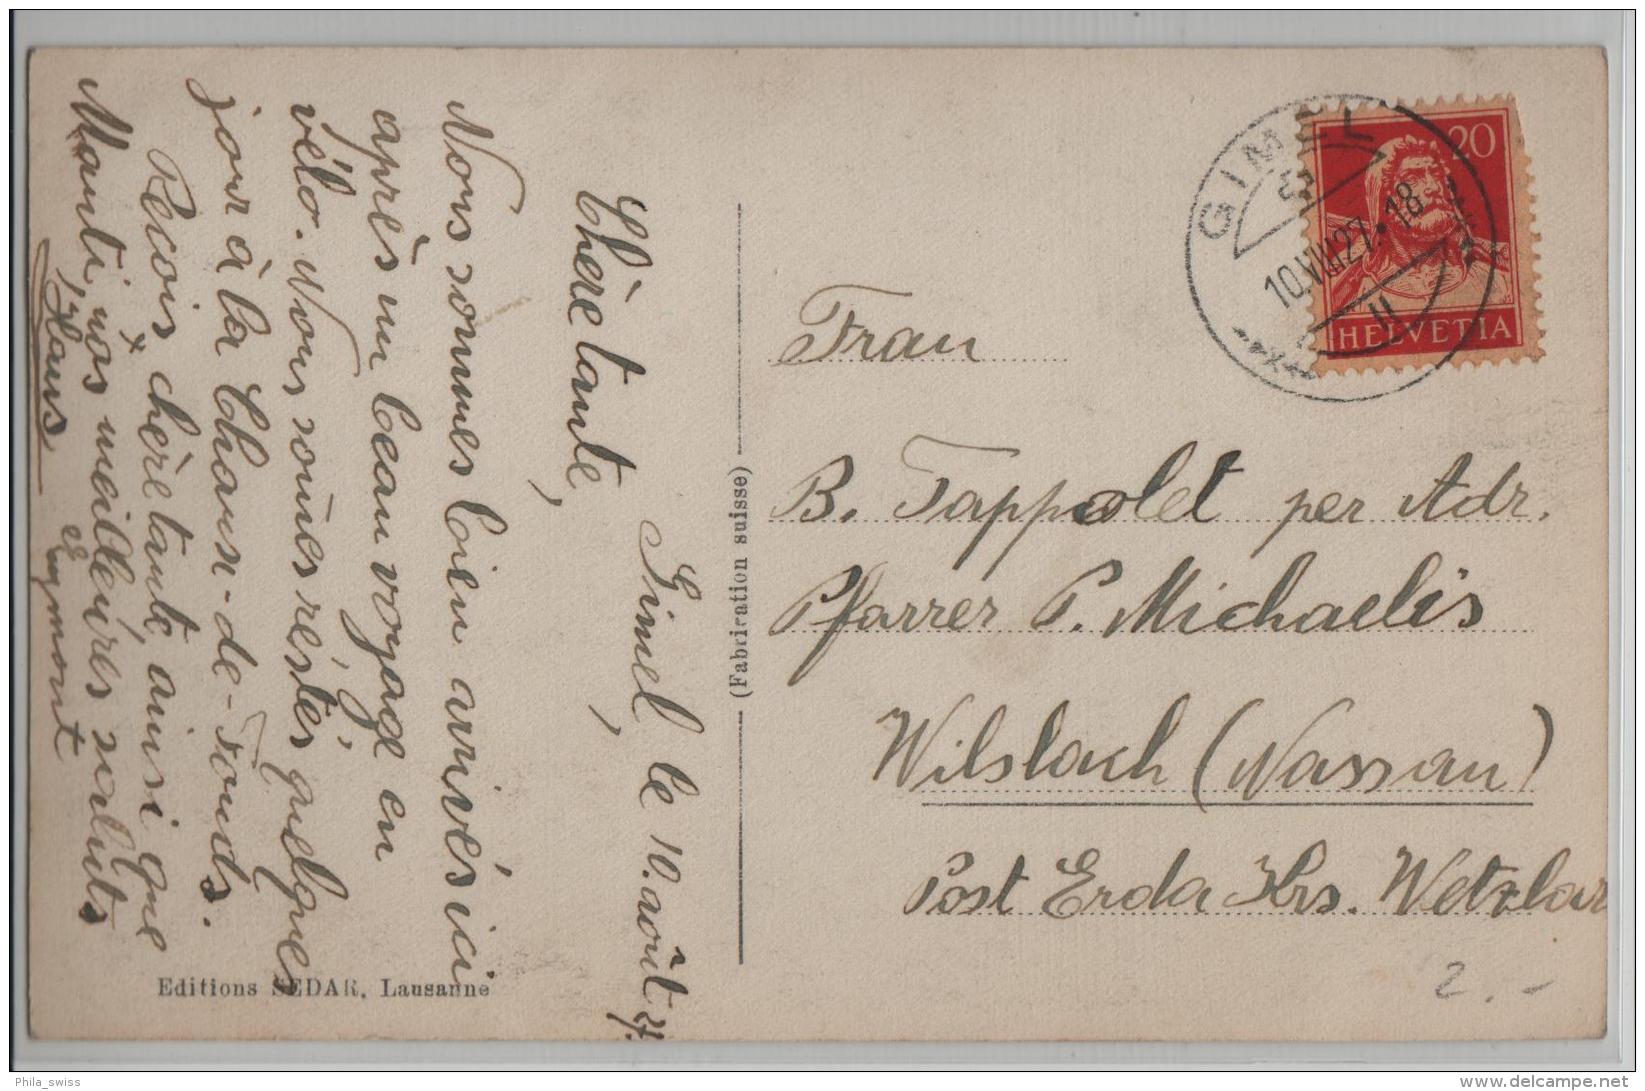 Gimel, le 10. août 27.
Chère tante,
Nous sommes bien arrivés ici
après un beau voyage en
vélo. Nous sômes réstés quelques
jour à la Chaux-de-Fonds.
Recois chère tante, ainsi que
Manti, nos meilleures saluts
Hans
Eymont
(Fabrication suisse)
Editions SEDAR, Lausanne
GIMEL
10.VIII.27.18
20
HELVETIA
Frau
B. Tappolet per Adr.
Pfarrer P. Michaelis
Wilsbach (Nassau)
Post Erda Krs. Wetzlar
2.-
Phila_swiss
delcampe.net